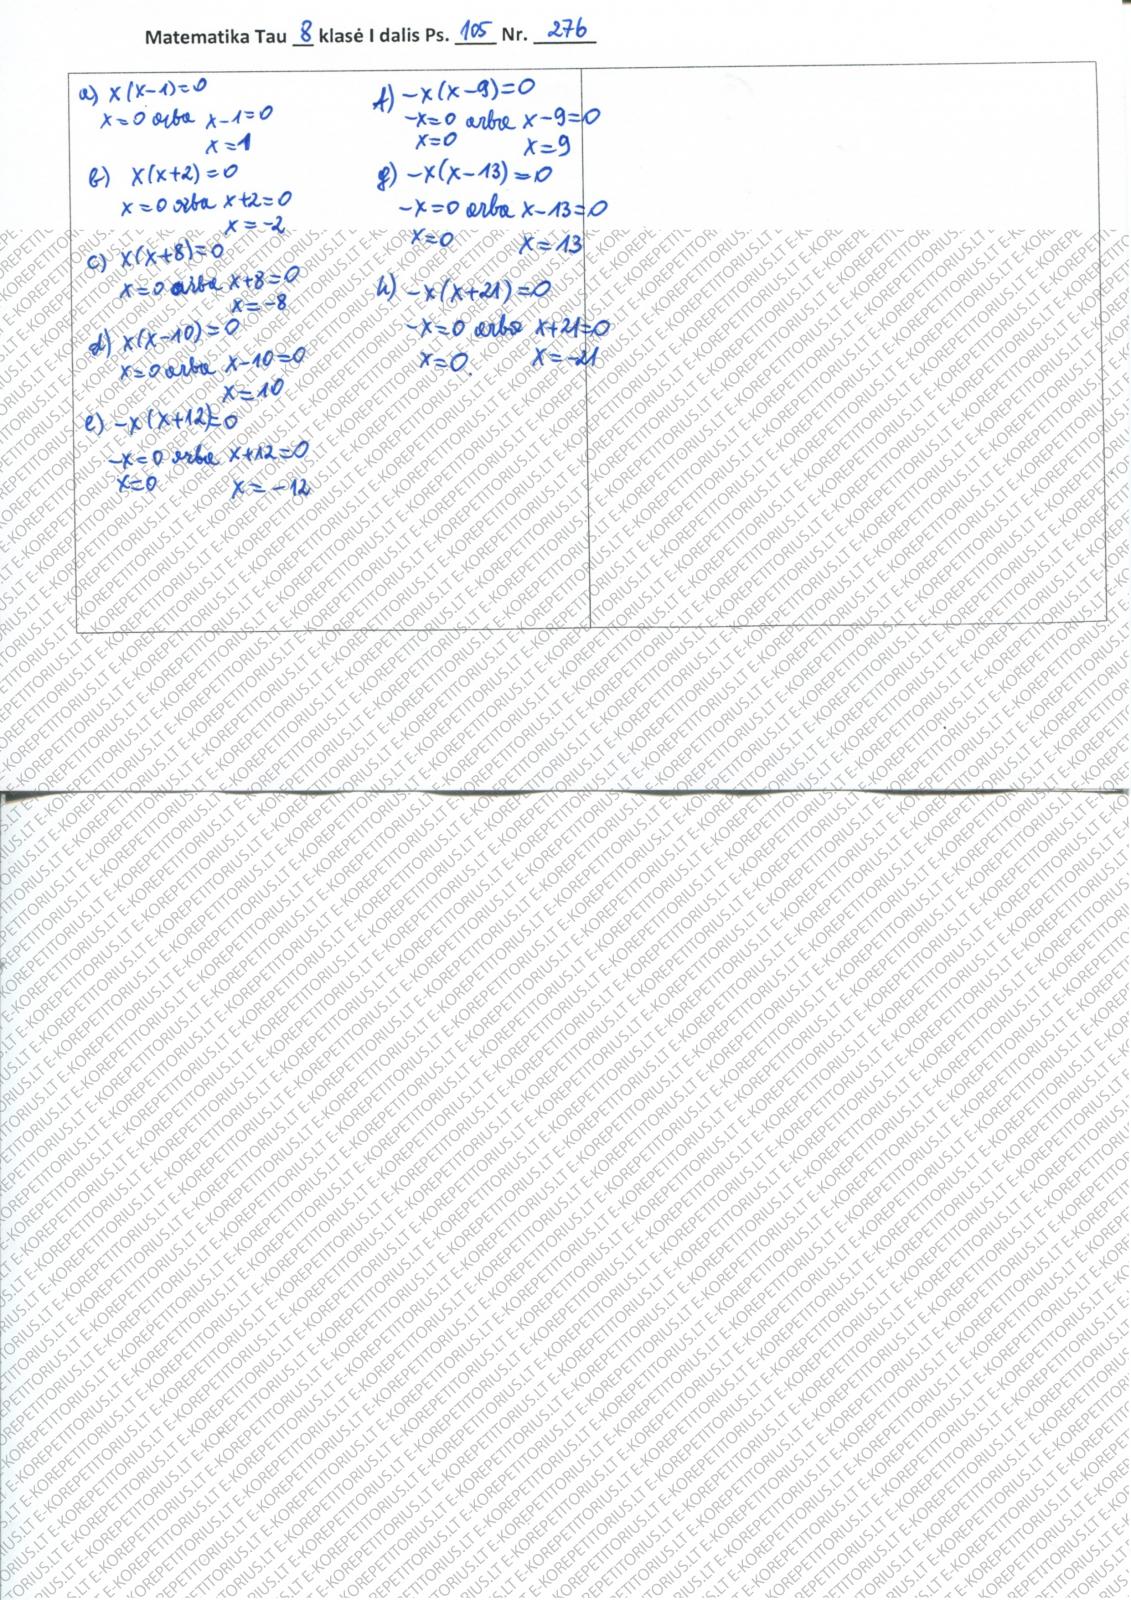 Matematika Tau 8 klasė I dalis Ps. 105 Nr. 276
a) x(x-1)=0
x=0 arba x-1=0
x=1
b) x(x+2)=0
x=0 arba x+2=0
x=-2
c) x(x+8)=0
x=0 arba x+8=0
x=-8
d) x(x-10)=0
x=0 arba x-10=0
x=10
e) -x(x+12)=0
-x=0 arba x+12=0
x=0 x=-12
f) -x(x-9)=0
-x=0 arba x-9=0
x=0 x=9
g) -x(x-13)=0
-x=0 arba x-13=0
x=0 x=13
h) -x(x+21)=0
-x=0 arba x+21=0
x=0. x=-21
E-KOREPETITORIUS.LT